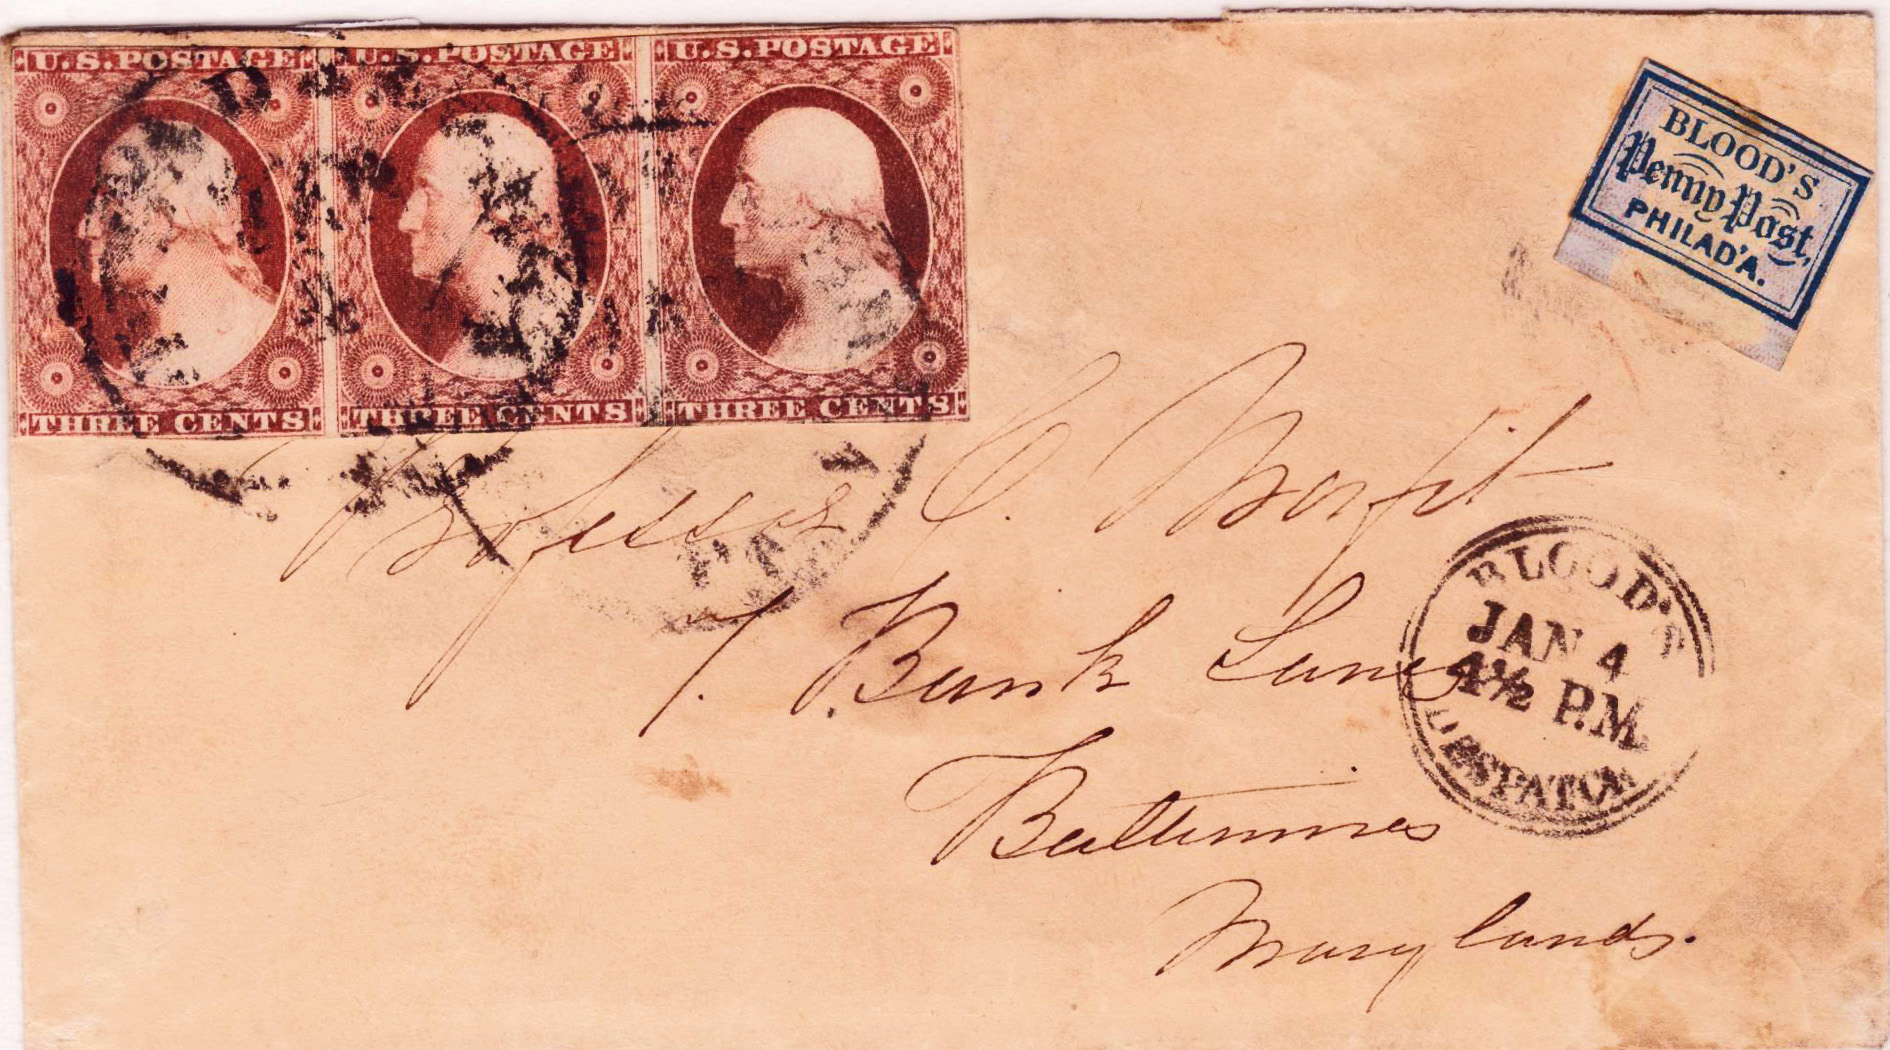 U.S.POSTAGE U.S.POSTAGE U.S.POSTAGE
THREE CENTS THREE CENTS THREE CENTS
BLOOD'S
Penny Post,
PHILAD'A.
Professor C. Morfit
7. Bank Lane
Baltimore
Maryland.
PA
BLOOD'S
JAN 4
4½ P.M.
DESPATCH